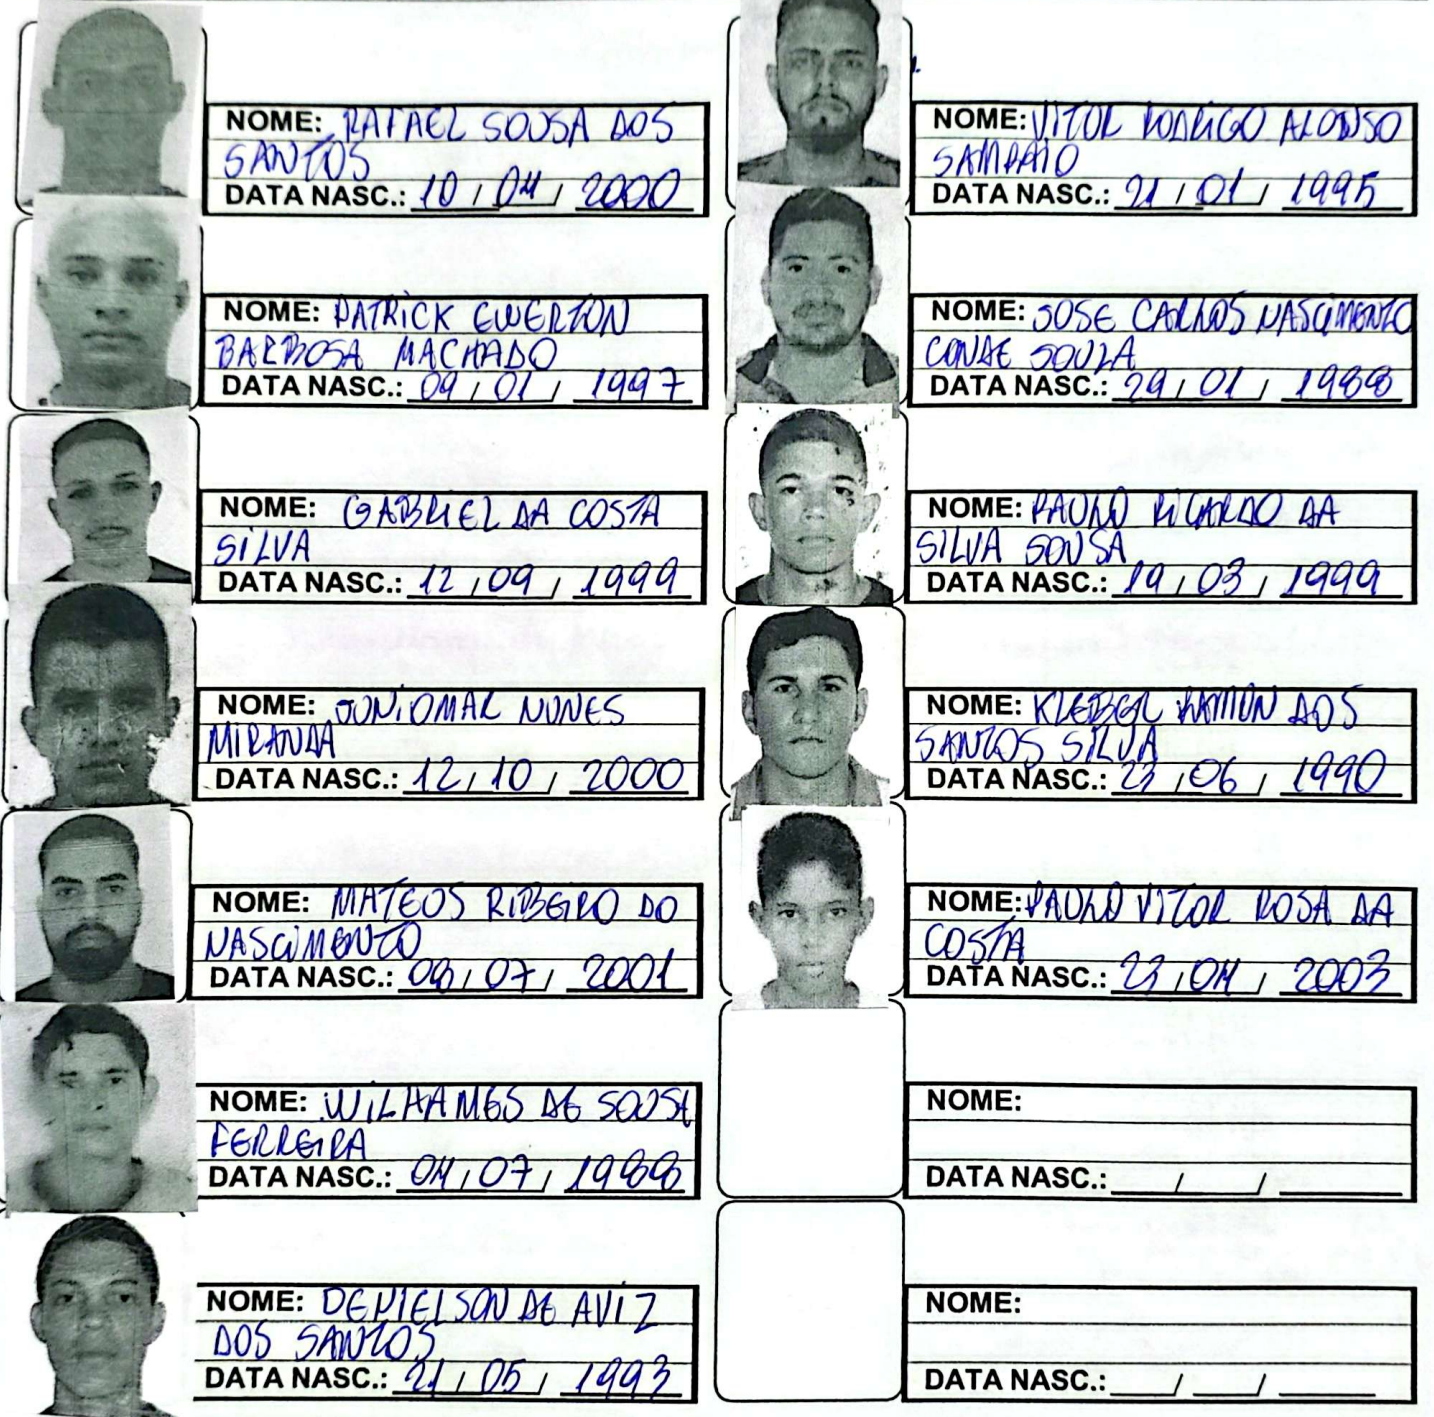 NOME: RAFAEL SOUSA DOS
SANTOS
DATA NASC.: 10 / 04 / 2000
NOME: PATRICK EWERTON
BARBOSA MACHADO
DATA NASC.: 09 / 01 / 1997
NOME: GABRIEL DA COSTA
SILVA
DATA NASC.: 12 / 09 / 1999
NOME: JUNIOMAR NUNES
MIRANDA
DATA NASC.: 12 / 10 / 2000
NOME: MATEOS RIBEIRO DO
NASCIMENTO
DATA NASC.: 08 / 07 / 2001
NOME: WILHAMES DE SOUSA
FERREIRA
DATA NASC.: 04 / 07 / 1988
NOME: DENIELSON DE AVIZ
DOS SANTOS
DATA NASC.: 21 / 05 / 1993
NOME: VITOR RODRIGO ALONSO
SAMPAIO
DATA NASC.: 21 / 01 / 1995
NOME: JOSE CARLOS NASCIMENTO
CONDE SOUZA
DATA NASC.: 29 / 01 / 1988
NOME: PAULO RICARDO DA
SILVA SOUSA
DATA NASC.: 19 / 03 / 1999
NOME: KLEBER RAMON DOS
SANTOS SILVA
DATA NASC.: 23 / 06 / 1990
NOME: PAULO VITOR ROSA DA
COSTA
DATA NASC.: 23 / 04 / 2003
NOME:
DATA NASC.: / /
NOME:
DATA NASC.: / /